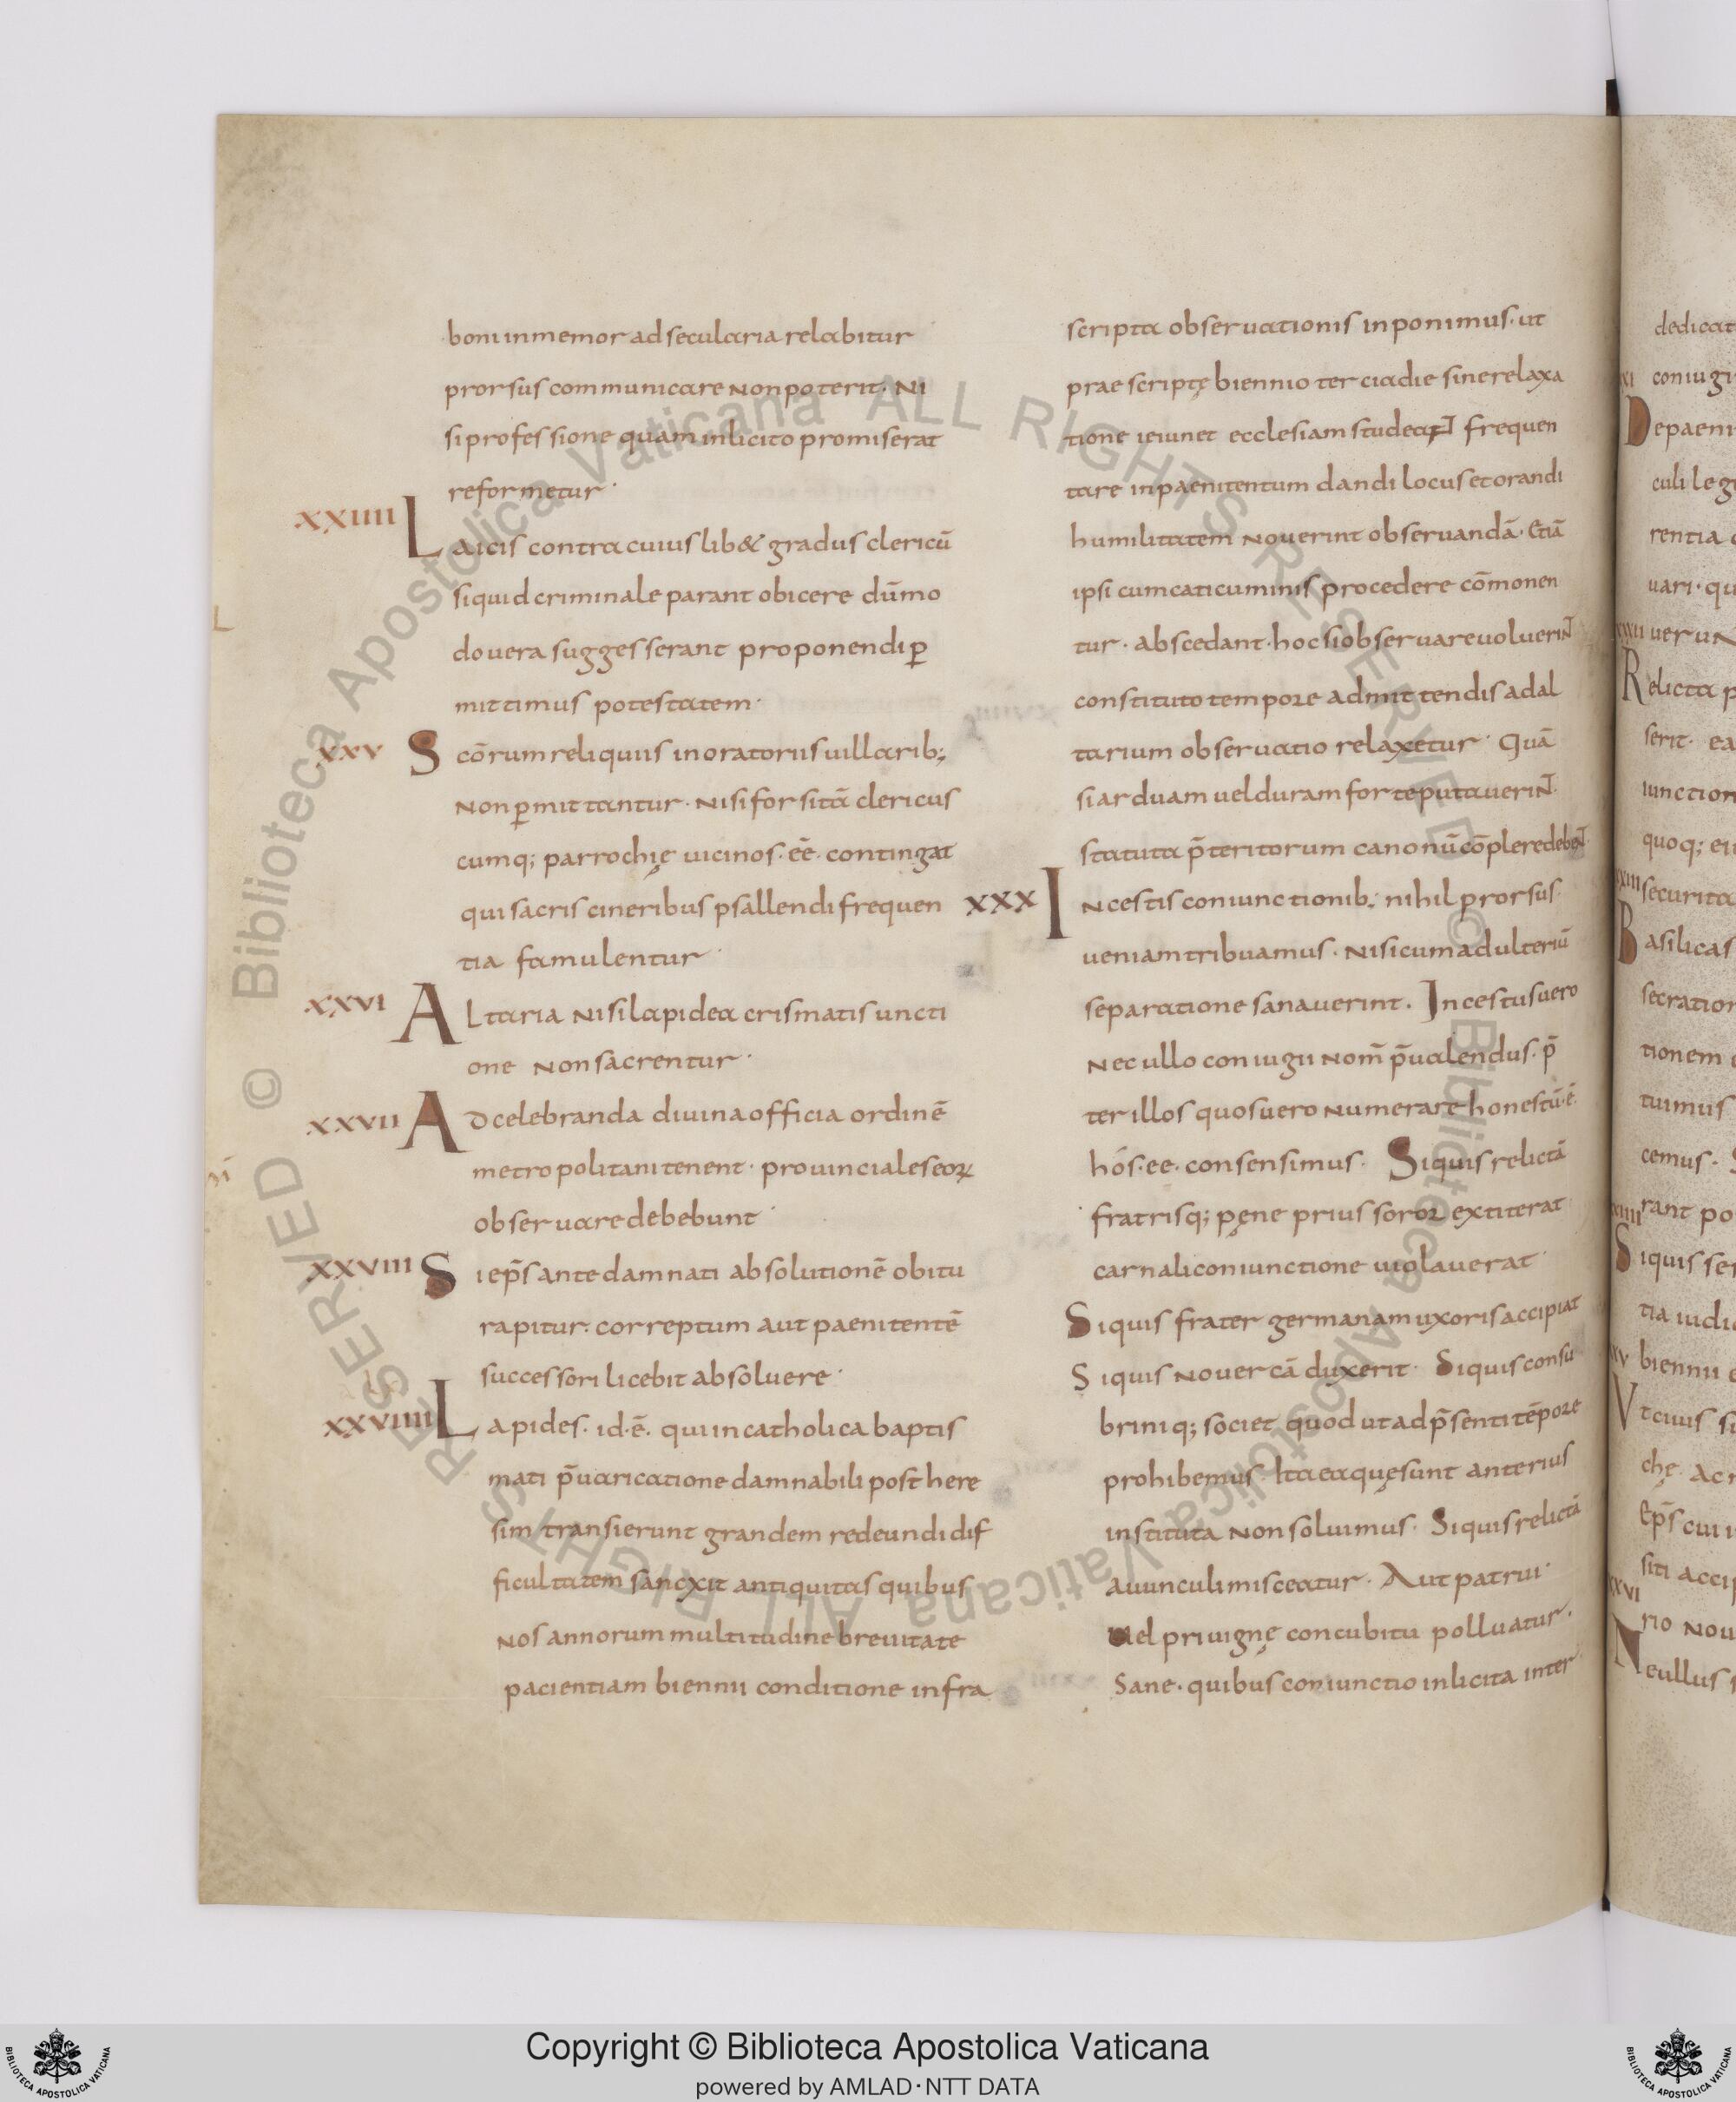 boni inmemor ad secularia relabitur
prorsus communicare non poterit. Ni
si professione quam inlicito promiserat
reformetur.
XXIIII Laicis contra cuiuslib& gradus clericū
siquid criminale parant obicere dūmo
do uera suggesserant proponendi p̲
mittimus potestatem.
XXV Scōrum reliquiis in oratoriis uillarib;
non p̲mittantur. nisi forsitā clericus
cumq; parrochię uicinos. eē. contingat
qui sacris cineribus psallendi frequen
tia famulentur.
XXVI Altaria nisi lapidea crismatis uncti
one non sacrentur.
XXVII Ad celebranda diuina officia ordinē
metropolitani tenent. prouinciales eoꝝ
obseruare debebunt.
XXVIII Si ep̄s ante damnati absolutionē obitu
rapitur. correptum aut paenitentē
successori licebit absoluere.
XXVIIII Lapides. id.ē. qui in catholica baptis
mati p̄uaricatione damnabili post here
sim transierunt grandem redeundi dif
ficultatem sancxit antiquitas quibus
nos annorum multitudine breuitate
pacientiam biennii conditione infra
scripta obseruationis inponimus. ut
praescriptę biennio tercia die sine relaxa
tione ieiunet ecclesiam frequen
tare in paenitentum dandi locus et orandi
humilitatem nouerint obseruandā. Etiā
ipsi cum caticuminis procedere cōmonen
tur. abscedant. hoc si obseruare uoluerint
constituto tempore admittendis ad al
tarium obseruatio relaxetur. Quā
si arduam uel duram forte putauerint.
statuta p̄teritorum canonū cōplere debent
XXX Incestis coniunctionib; nihil prorsus.
ueniam tribuamus. nisi cum adulteriū
separatione sanauerint. Incestus uero
nec ullo coniugii nom̄ p̄ualendus. p̄
ter illos quos uero numerare honestū.ē.
hós.ee. consensimus. Siquis relictā
fratrisq; pęne prius soror extiterat
carnali coniunctione uiolauerat.
Siquis frater germanam uxoris accipiat
Siquis nouercā duxerit. Siquis consu
briniq; societ quod ut ad p̄senti tēpore
prohibemus. Ita ea quę sunt anterius
instituta non soluimus. Siquis relictā
auunculi misceatur. Aut patrui.
uel priuignę concubitu polluatur.
Sane. quibus coniunctio inlicita inter
dedicat
coniugi
Depaeni
culi leg
rentia
uari. qu
uerun
Relicta p
serit. ea
iunction
quoq; ei
securita
Basilicas
secration
tionem
tuimus
cemus. S
rant po
Siquis ser
tia iudi
biennii
Vt cuius si
chę. ac
Ep̄s cui
siti accip
rio nou
Neullus s
Biblioteca Apostolica Vaticana ALL RIGHTS RESERVED ©
Biblioteca Apostolica Vaticana ALL RIGHTS RESERVED ©
BIBLIOTECA APOSTOLICA VATICANA
Copyright © Biblioteca Apostolica Vaticana
powered by AMLAD·NTT DATA
BIBLIOTECA APOSTOLICA VATICANA